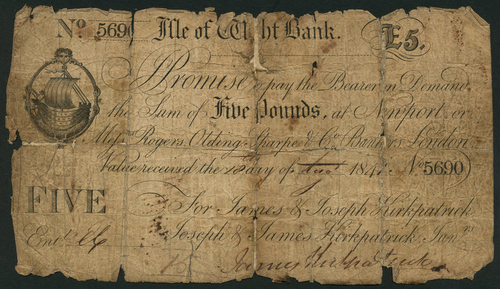 No. 5690 Isle of Wight Bank. £5.
I Promise to pay the Bearer on Demand
the Sum of Five Pounds, at Newport or
Messrs Rogers, Olding, Sharpe & Co. Bankers London
Value received the day of 184 No 5690
FIVE For James & Joseph Kirkpatrick
Entd. Joseph & James Kirkpatrick Junrs
James Kirkpatrick